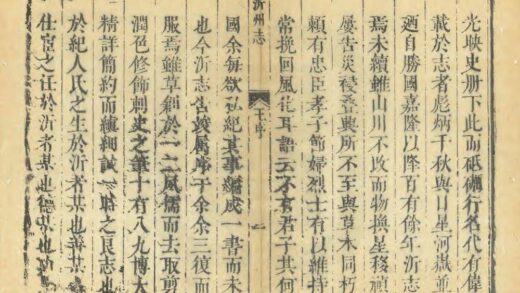 光映史册下此而砥礪行名代有偉
載於志者彪炳千秋與日星河嶽並
迺自勝國嘉隆以降百有余年沂志
焉未續雖山川不改而物換星移頑
屡告災祲叠興所不至與草木同朽
頼有忠臣孝子節婦烈士有以維持
常挽回風化耳語云不有君子其何
沂州志
序
一
國余每欲紀其事編成一書而未
也今沂志告竣屬序于余余三復而
服焉雖草創於一二風儒而去取剪
潤色修飾刺史之筆十有八九博大
精詳簡約而縝細誠一時之良志也
於紀人氏之生於沂者某也善某
仕宦之任於沂者某也德某也